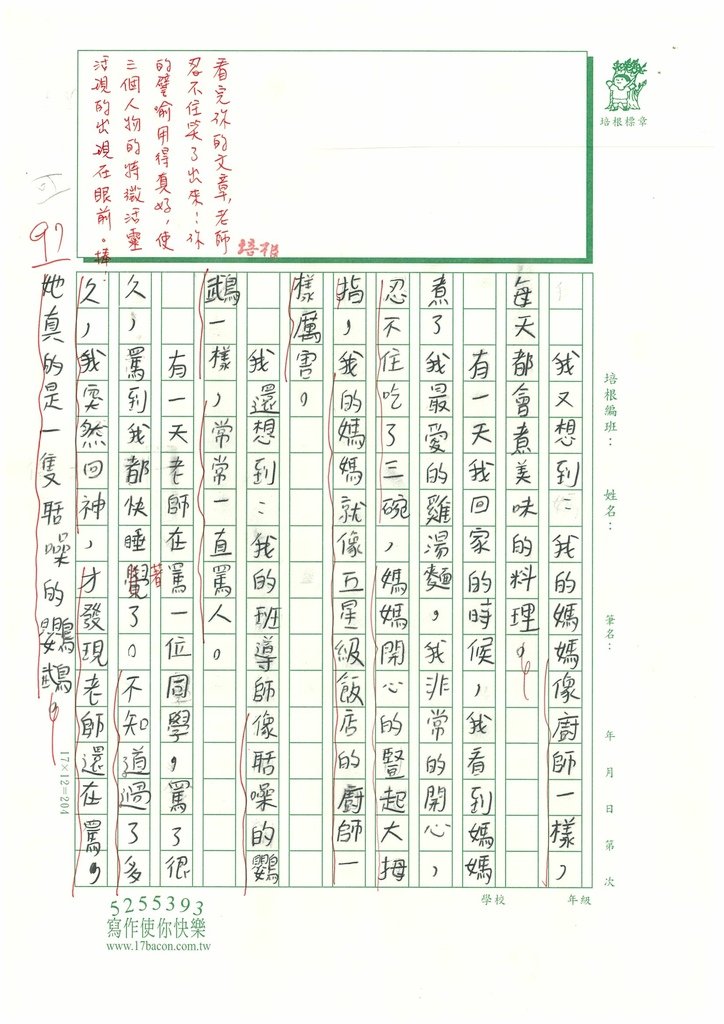 看完你的文章,老師
忍不住笑了出來!你
的譬喻用得真好,使
三個人物的特徵活靈
活現的出現在眼前。棒
培根
97
培根標章
培根編班:
姓名:
筆名:
年 月 日 第 次
我又想到:我的媽媽像廚師一樣,
每天都會煮美味的料理。
有一天我回家的時候,我看到媽媽
煮了我最愛的雞湯麵,我非常的開心,
忍不住吃了三碗,媽媽開心的豎起大拇
指,我的媽媽就像五星級飯店的廚師一
樣厲害。
我還想到:我的班導師像聒噪的鸚
鵡一樣,常常一直罵人。
有一天老師在罵一位同學,罵了很
久,罵到我都快睡覺著了。不知道過了多
久,我突然回神,才發現老師還在罵,
她真的是一隻聒噪的鸚鵡。
17×12=204
學校
年級
5255393
寫作使你快樂
www.17bacon.com.tw